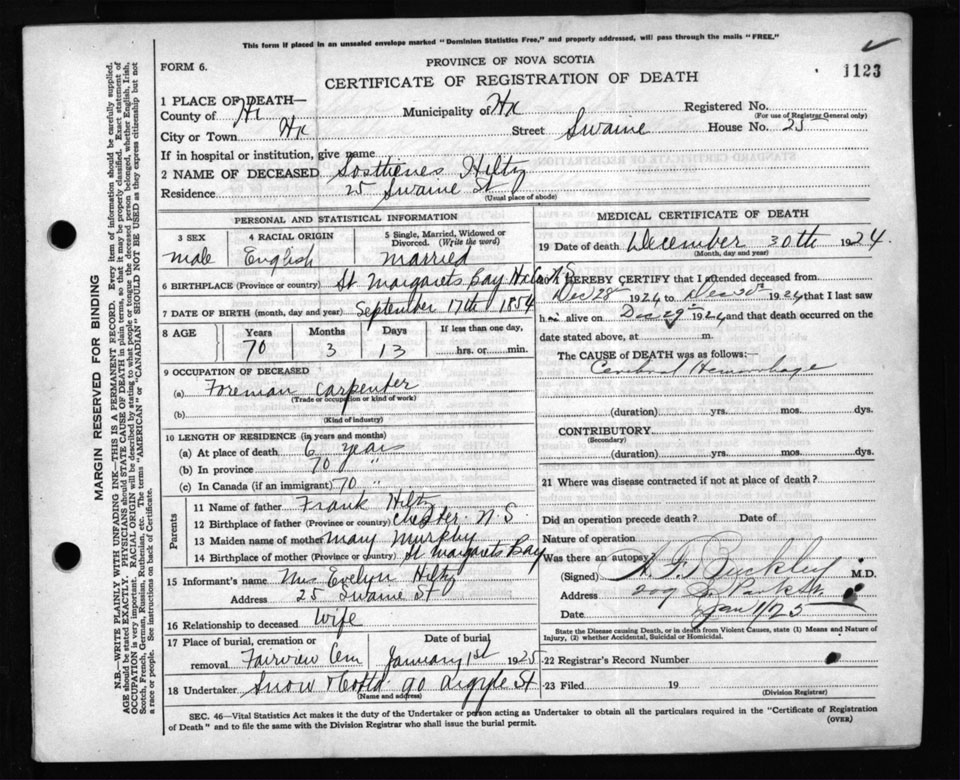 This form if placed in an unsealed envelope marked "Dominion Statistics Free," and properly addressed, will pass through the mails "FREE."
FORM 6.
PROVINCE OF NOVA SCOTIA
1123
CERTIFICATE OF REGISTRATION OF DEATH
1 PLACE OF DEATH—
County of Hx Municipality of Hx Registered No.
(For use of Registrar General only)
City or Town Hx Street Swaine House No. 25
If in hospital or institution, give name
2 NAME OF DECEASED Sosthenes Hiltz
Residence 25 Swaine St
(Usual place of abode)
PERSONAL AND STATISTICAL INFORMATION
3 SEX 4 RACIAL ORIGIN 5 Single, Married, Widowed or Divorced. (Write the word)
male English married
6 BIRTHPLACE (Province or country) St Margarets Bay Hx Co N.S.
7 DATE OF BIRTH (month, day and year) September 17th 1854
8 AGE Years Months Days If less than one day,
70 3 13 hrs. or min.
9 OCCUPATION OF DECEASED
(a) Foreman carpenter
(Trade or occupation or kind of work)
(b)
(Kind of industry)
10 LENGTH OF RESIDENCE (in years and months)
(a) At place of death 6 years
(b) In province 70 "
(c) In Canada (if an immigrant) 70 "
Parents
11 Name of father Frank Hiltz
12 Birthplace of father (Province or country) Chester N.S.
13 Maiden name of mother Mary Murphy
14 Birthplace of mother (Province or Country) St Margarets Bay
15 Informant's name Mrs Evelyn Hiltz
Address 25 Swaine St
16 Relationship to deceased Wife
17 Place of burial, cremation or removal Fairview Cem Date of burial January 1st 1925
18 Undertaker Snow & Co Ltd 90 Argyle St
(Name and address)
MEDICAL CERTIFICATE OF DEATH
19 Date of death December 30th 1924.
(Month, day and year)
I HEREBY CERTIFY that I attended deceased from
Dec 28 1924 to Dec 30th 1924 that I last saw
him alive on Dec 29th 1924 and that death occurred on the
date stated above, at m.
The CAUSE of DEATH was as follows:—
Cerebral Hemorrhage
(duration) yrs. mos. dys.
CONTRIBUTORY
(Secondary)
(duration) yrs. mos. dys.
21 Where was disease contracted if not at place of death?
Did an operation precede death? Date of
Nature of operation
Was there an autopsy?
(Signed) A.F. Buckley M.D.
Address 209 S. Park St.
Date Jan 1/25
State the Disease causing Death, or in death from Violent Causes, state (1) Means and Nature of
Injury, (2) whether Accidental, Suicidal or Homicidal.
22 Registrar's Record Number
23 Filed 19
(Division Registrar)
SEC. 46—Vital Statistics Act makes it the duty of the Undertaker or person acting as Undertaker to obtain all the particulars required in the "Certificate of Registration
of Death" and to file the same with the Division Registrar who shall issue the burial permit.
(OVER)
MARGIN RESERVED FOR BINDING
N.B.—WRITE PLAINLY WITH UNFADING INK—THIS IS A PERMANENT RECORD. Every item of information should be carefully supplied.
AGE should be stated EXACTLY. PHYSICIANS should STATE CAUSE OF DEATH in plain terms, so that it may be properly classified. Exact statement of
OCCUPATION is very important. RACIAL ORIGIN will be described by stating to what people or tongue the deceased person belonged, whether English, Irish,
Scotch, French, German, Russian, Ruthenian, etc. The terms "AMERICAN" or "CANADIAN" SHOULD NOT BE USED as they express citizenship but not
a race or people. See instructions on back of Certificate.